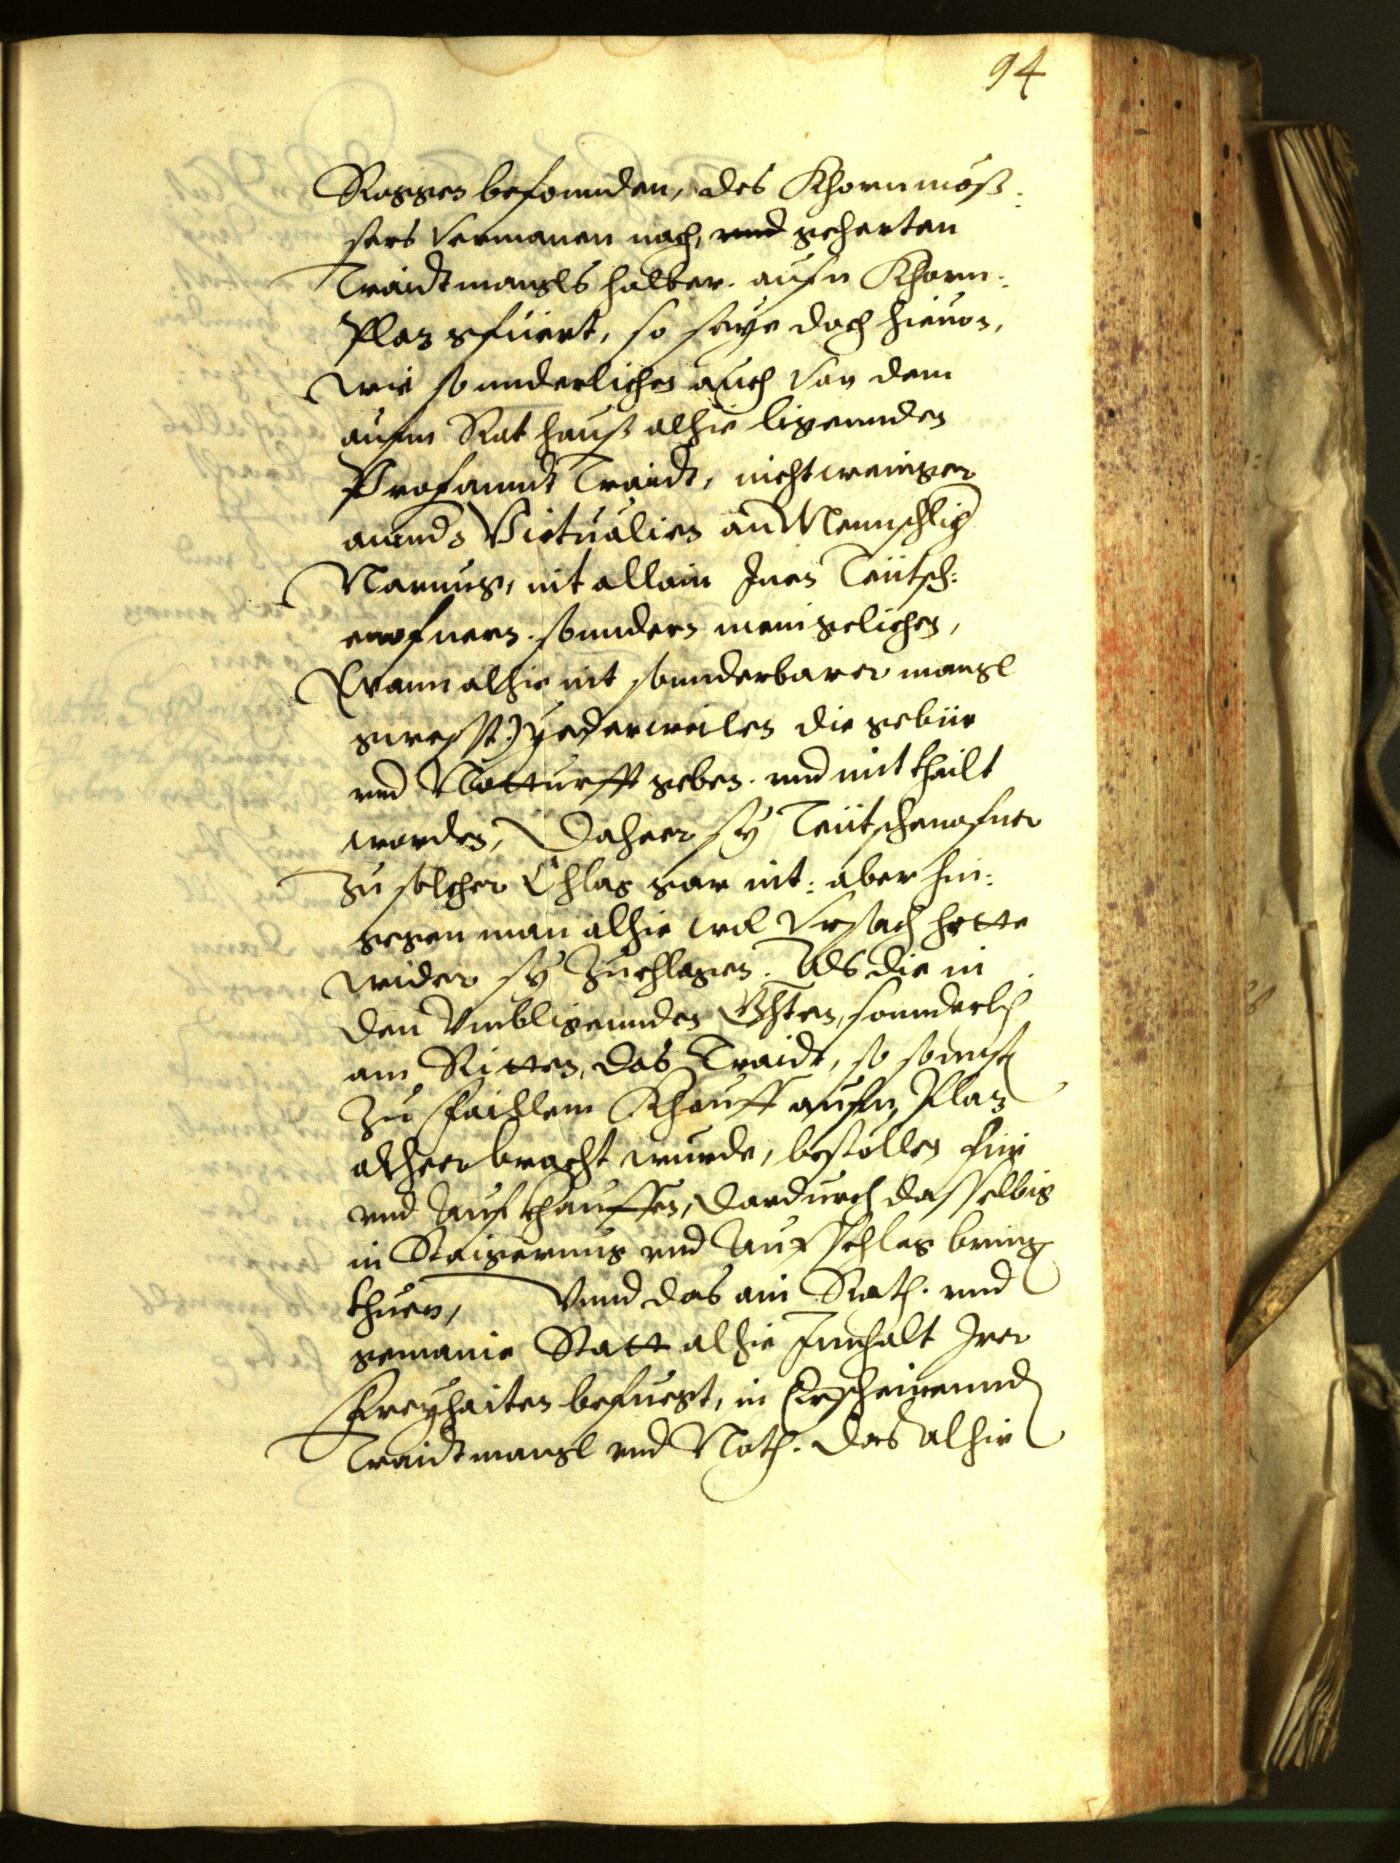 94
Roggen befonnden, des Khornmöß:
sers Vermanen nach, vnd geherten
Traidtmangls halber. aufn Khorn:
Plaz gfüert, so seye doch hieuon,
wie sonnderlichen auch von dem
aufm Rathauß alhie ligennden
Profanndt Traidt, nichtweniger
annds Victualien an Mennschlich
Narung, nit allain Inen Teütsch:
enofnern. sonndern menigelichen,
(Wann alhie nit sonnderbarer mangl
gwesst) yederweilen die gebür
vnd Notturfft geben. vnd mitthailt
worden, Daheer sy Teütschenofner
zu solcher Chlag gar nit: aber hin:
gegen man alhie wol Vrsach hette
wider sy Zuchlagen. Als die in
den Vmbligennden Ghten, sonnderlich
am Ritten, das Traidt, so sonnst
zu failem Khauff aufn Plaz
alheer bracht wurde, bestollen für
vnd Aufkhauffen, dardurch dasselbig
in Staigerung vnd Aufschlag bring
thuen, Vnnd das ain Rath. vnd
gemaine Statt alhie Innhalt Irer
Freyhaiten befuegt, in Erscheinennd
Traidtmangl vnd Noth. das alhie